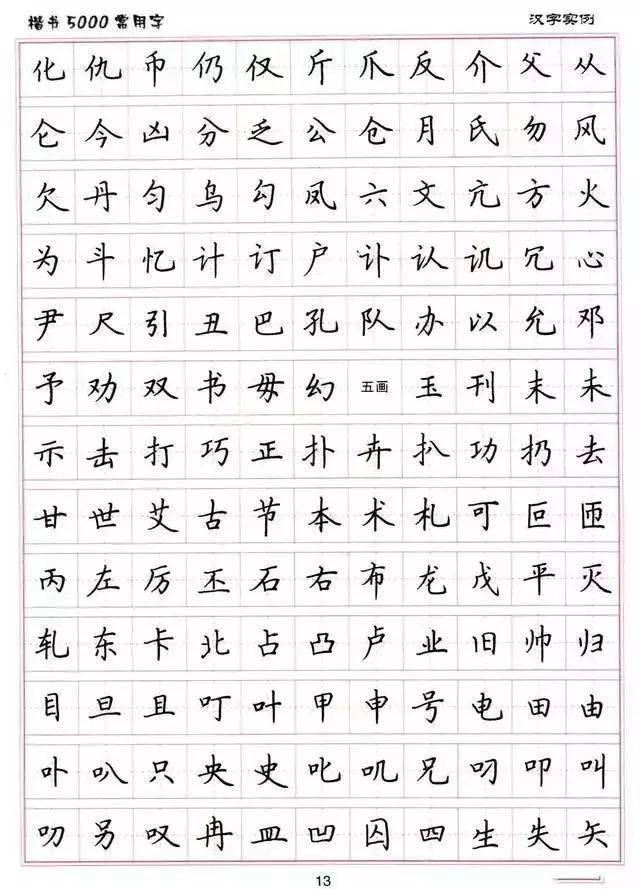 楷书5000常用字 汉字实例
化 仇 币 仍 仅 斤 爪 反 介 父 从
仑 今 凶 分 乏 公 仓 月 氏 勿 风
欠 丹 匀 乌 勾 凤 六 文 亢 方 火
为 斗 忆 计 订 户 讣 认 讥 冗 心
尹 尺 引 丑 巴 孔 队 办 以 允 邓
予 劝 双 书 毋 幻 五画 玉 刊 末 未
示 击 打 巧 正 扑 卉 扒 功 扔 去
甘 世 艾 古 节 本 术 札 可 叵 匝
丙 左 厉 丕 石 右 布 龙 戊 平 灭
轧 东 卡 北 占 凸 卢 业 旧 帅 归
目 旦 且 叮 叶 甲 申 号 电 田 由
卟 叭 只 央 史 叱 叽 兄 叼 叩 叫
叻 另 叹 冉 皿 凹 囚 四 生 失 矢
13